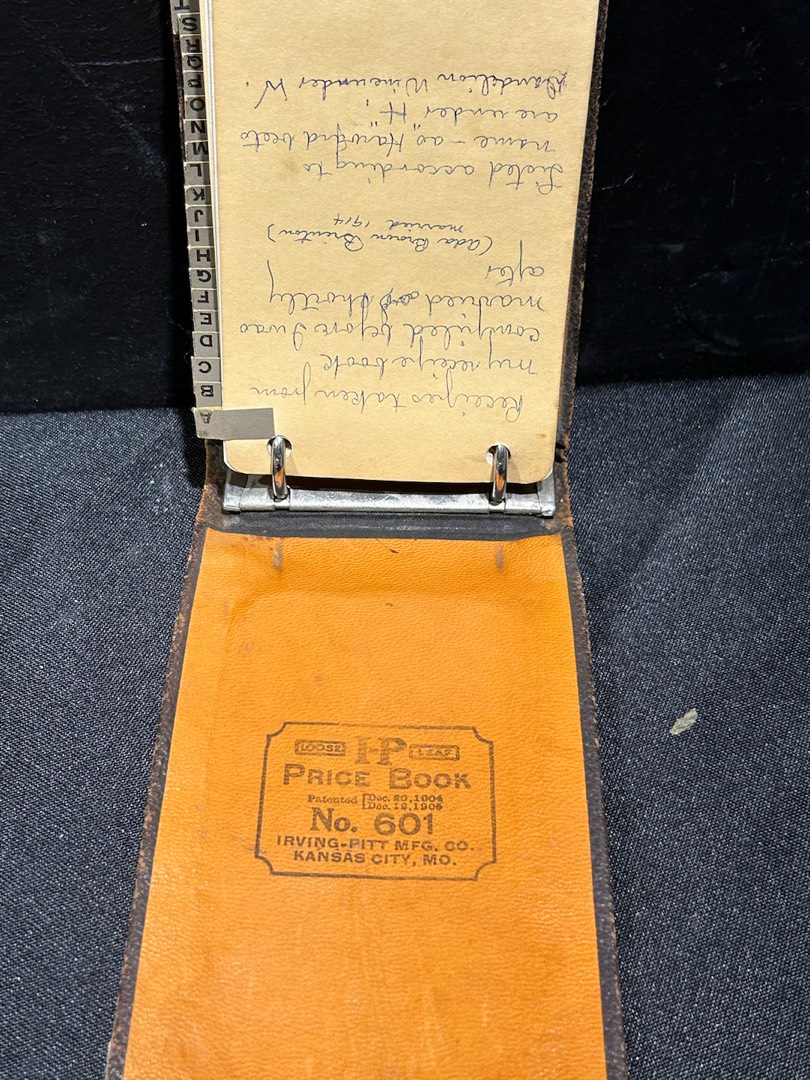 Receipes taken from
my receipe book
compiled before I was
married or shortly
after
(Ada Brown Brinton)
married 1914
Listed according to
name - as "Harvard beets
are under "H";
Dandelion Wine under W.
A
B
C
D
E
F
G
H
I
J
K
L
M
N
O
P
Q
R
S
T
LOOSE I-P LEAF
PRICE BOOK
Patented Dec. 20, 1904
Dec. 19, 1905
No. 601
IRVING-PITT MFG. CO.
KANSAS CITY, MO.